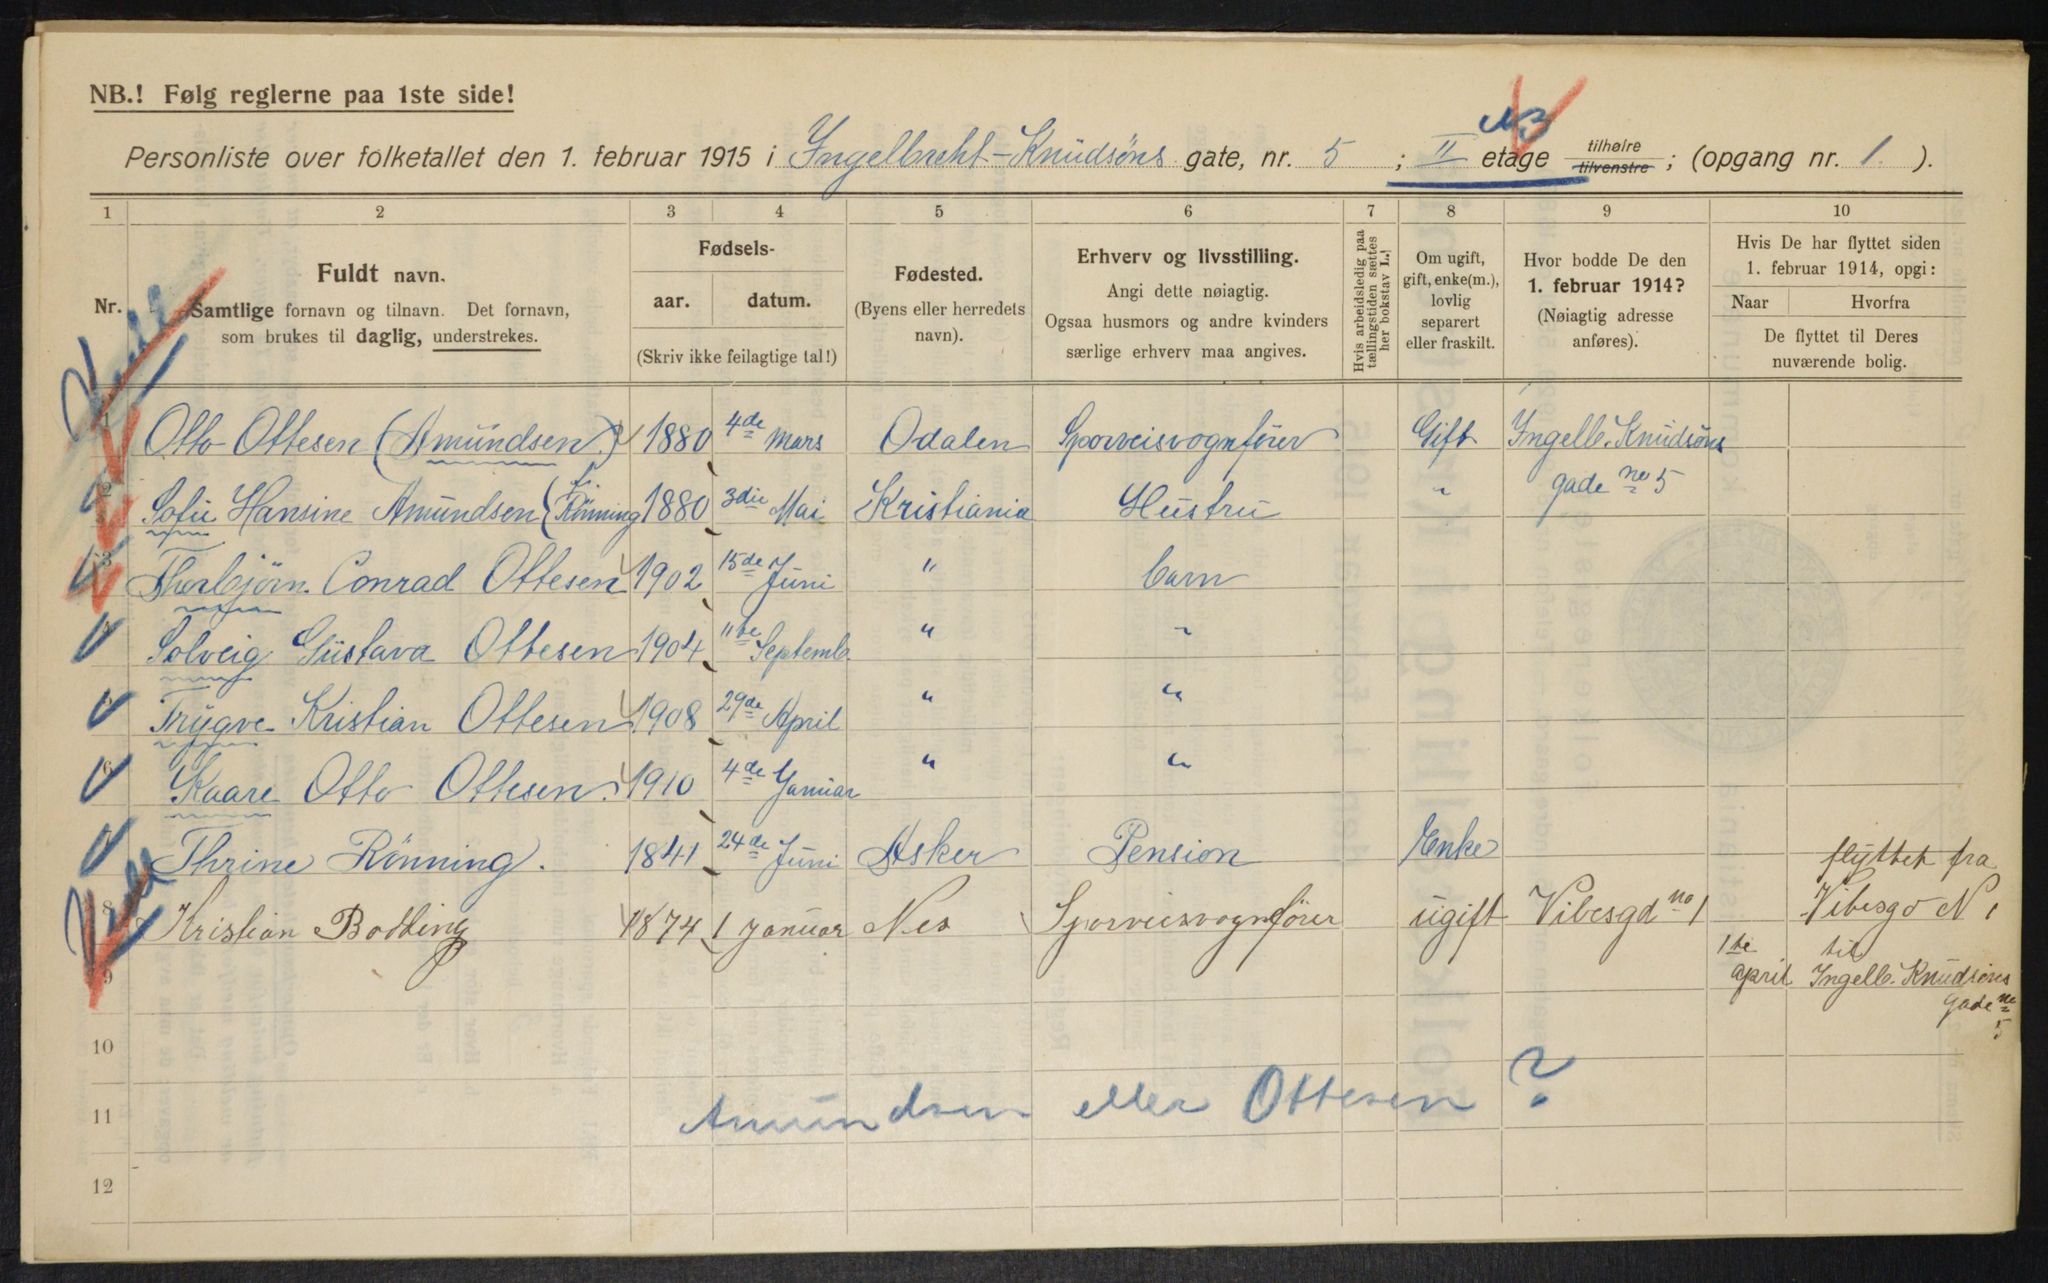 NB.! Følg reglerne paa 1ste side!
NB
Personliste over folketallet den 1. februar 1915 i Ingelbreht-Knudsöns gate, nr. 5 ; II etage tilhøire tilvenstre ; (opgang nr. 1. ).
1 2 3 4 5 6 7 8 9 10
Nr.
Fuldt navn.
Samtlige fornavn og tilnavn. Det fornavn,
som brukes til daglig, understrekes.
Fødsels-
aar. datum.
(Skriv ikke feilagtige tal!)
Fødested.
(Byens eller herredets
navn).
Erhverv og livsstilling.
Angi dette nøiagtig.
Ogsaa husmors og andre kvinders
særlige erhverv maa angives.
Hvis arbeidsledig paa
tællingstiden sættes
her bokstav L.
Om ugift,
gift, enke(m.),
lovlig
separert
eller fraskilt.
Hvor bodde De den
1. februar 1914?
(Nøiagtig adresse
anføres).
Hvis De har flyttet siden
1. februar 1914, opgi:
Naar Hvorfra
De flyttet til Deres
nuværende bolig.
1 Otto Ottesen (Amundsen) 1880 4de Mars Odalen Sporveisvognfører Gift Ingelb. Knudsöns
gade no 5
2 Sofie Hansine Amundsen (f. Rönning 1880 3die Mai Kristiania Hustru "
3 Thorbjörn Conrad Ottesen 1902 15de Juni " barn
4 Solveig Gustava Ottesen 1904 11te Septemb. " "
5 Trygve Kristian Ottesen 1908 29de April " "
6 Kaare Otto Ottesen. 1910 4de Januar " "
7 Thrine Rönning. 1841 24de Juni Asker Pension Enke
8 Kristian Bodding 1874 1 januar Nes Sporveisvognfører ugift Vibesgd no 1
flyttet fra
Vibesgd N 1
1te til
april Ingelb. Knudsöns
gade no
5
9
10
11
Amundsen eller Ottesen ?
12